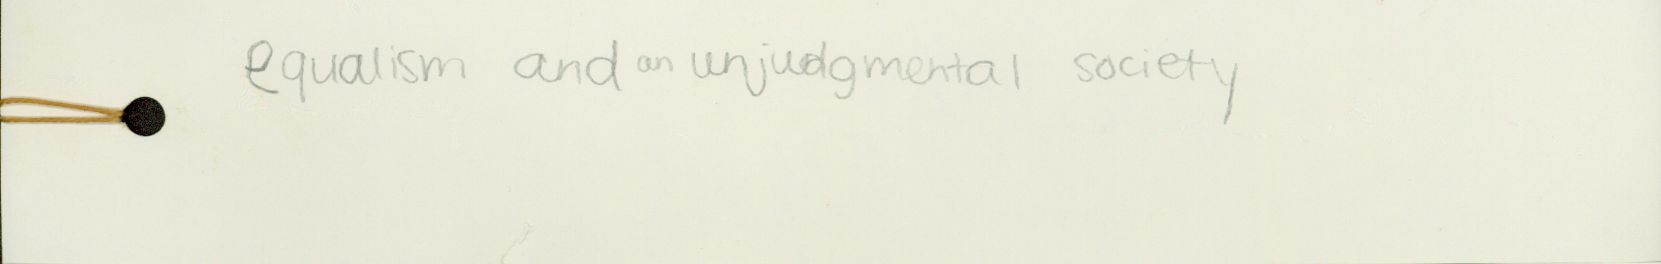 equalism and an unjudgmental society